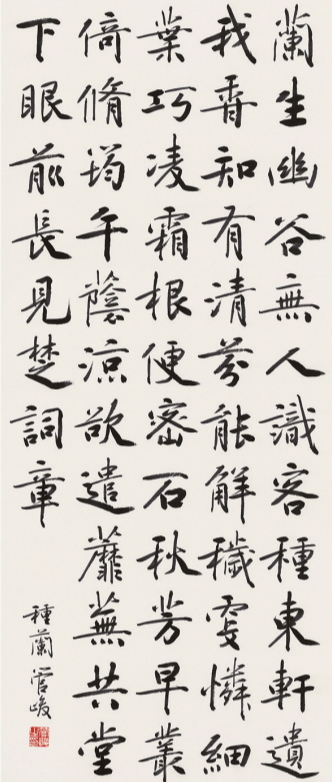 蘭生幽谷無人識客種東軒遺
我香知有清芬能解穢更憐細
葉巧凌霜根便密石秋芳早叢
倚脩筠午蔭涼欲遣蘼蕪共堂
下眼前長見楚詞章
種蘭 管峻